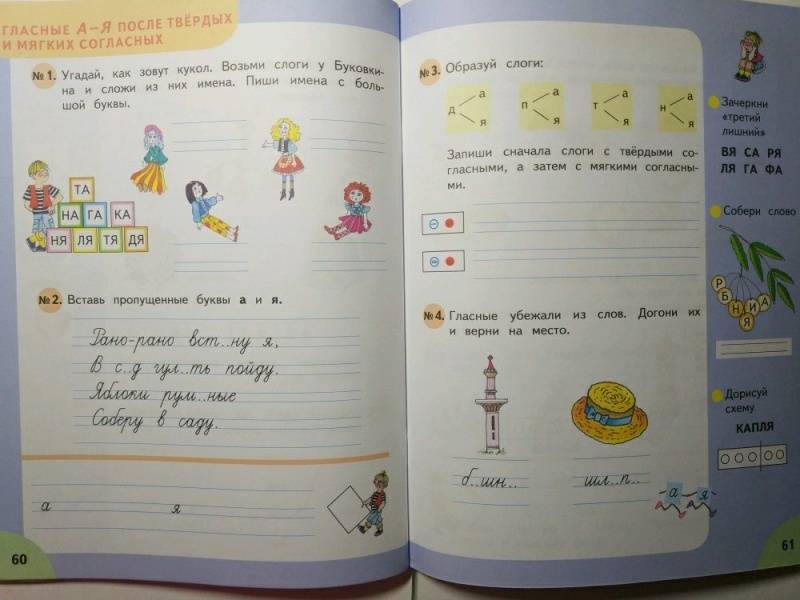 ГЛАСНЫЕ А–Я ПОСЛЕ ТВЁРДЫХ
И МЯГКИХ СОГЛАСНЫХ
№1. Угадай, как зовут кукол. Возьми слоги у Буковки-
на и сложи из них имена. Пиши имена с боль-
шой буквы.
ТА
НА ГА КА
НЯ ЛЯ ТЯ ДЯ
№2. Вставь пропущенные буквы а и я.
Рано-рано вст..ну я,
В с..д гул..ть пойду.
Яблоки рум..ные
Соберу в саду.
а я
60
№3. Образуй слоги:
д а я
п а я
т а я
н а я
Запиши сначала слоги с твёрдыми со-
гласными, а затем с мягкими согласны-
ми.
№4. Гласные убежали из слов. Догони их
и верни на место.
б..шн.. шл..п..
а я
Зачеркни
«третий
лишний»
ВЯ СА РЯ
ЛЯ ГА ФА
Собери слово
Р Б Н Я И Н А
Дорисуй
схему
КАПЛЯ
61